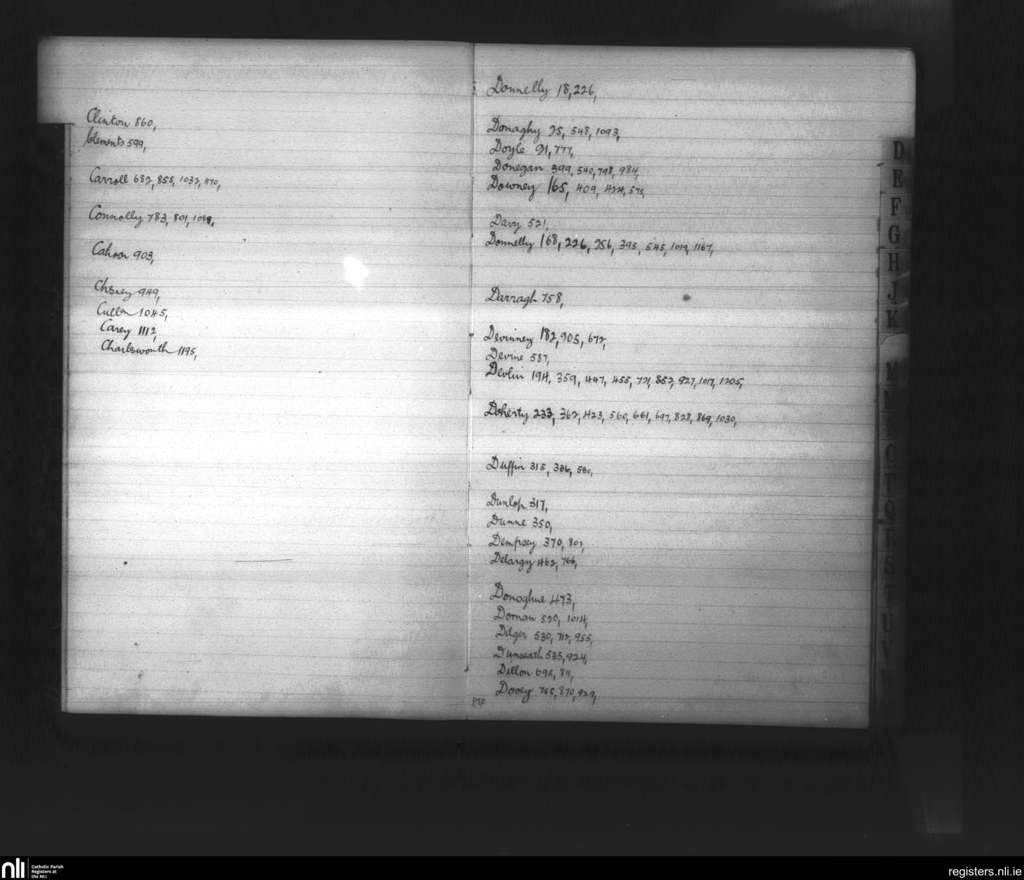 Clinton 860,
Clements 599,
Carroll 682, 858, 1032, 470,
Connolly 783, 801, 1038,
Cahoon 903,
949,
Cullen 1045,
Carey 1112,
Charlesworth 1195,
Donnelly 18, 226,
Donaghy 25, 548, 1093,
Doyle 91, 777,
Donegan 399, 540, 798, 984,
Downey 165, 409, 424,
Davy 521,
Donnelly 168, 226, 256, 395, 545, 1019, 1167,
Darragh 758,
Devinney 182, 905, 672,
Devine 587,
Devlin 194, 359, 447, 455, 721, 852, 927, 1017, 1205,
Doherty 233, 362, 423, 560, 661, 697, 828, 869, 1030,
Duffin 315, 336, 580,
Dunlop 317,
Dunne 350,
Dempsey 370, 801,
Delargy 462, 766,
Donoghue 473,
Dornan 520, 1014,
Dilger 530, 712, 955,
Dunseath 535, 924,
Dillon 696,
Dooey 765, 870, 929,
D
E
F
G
H
J
K
M
O
T
Q
R
S
T
U
V
nli
Catholic Parish
Registers at
the NLI
registers.nli.ie